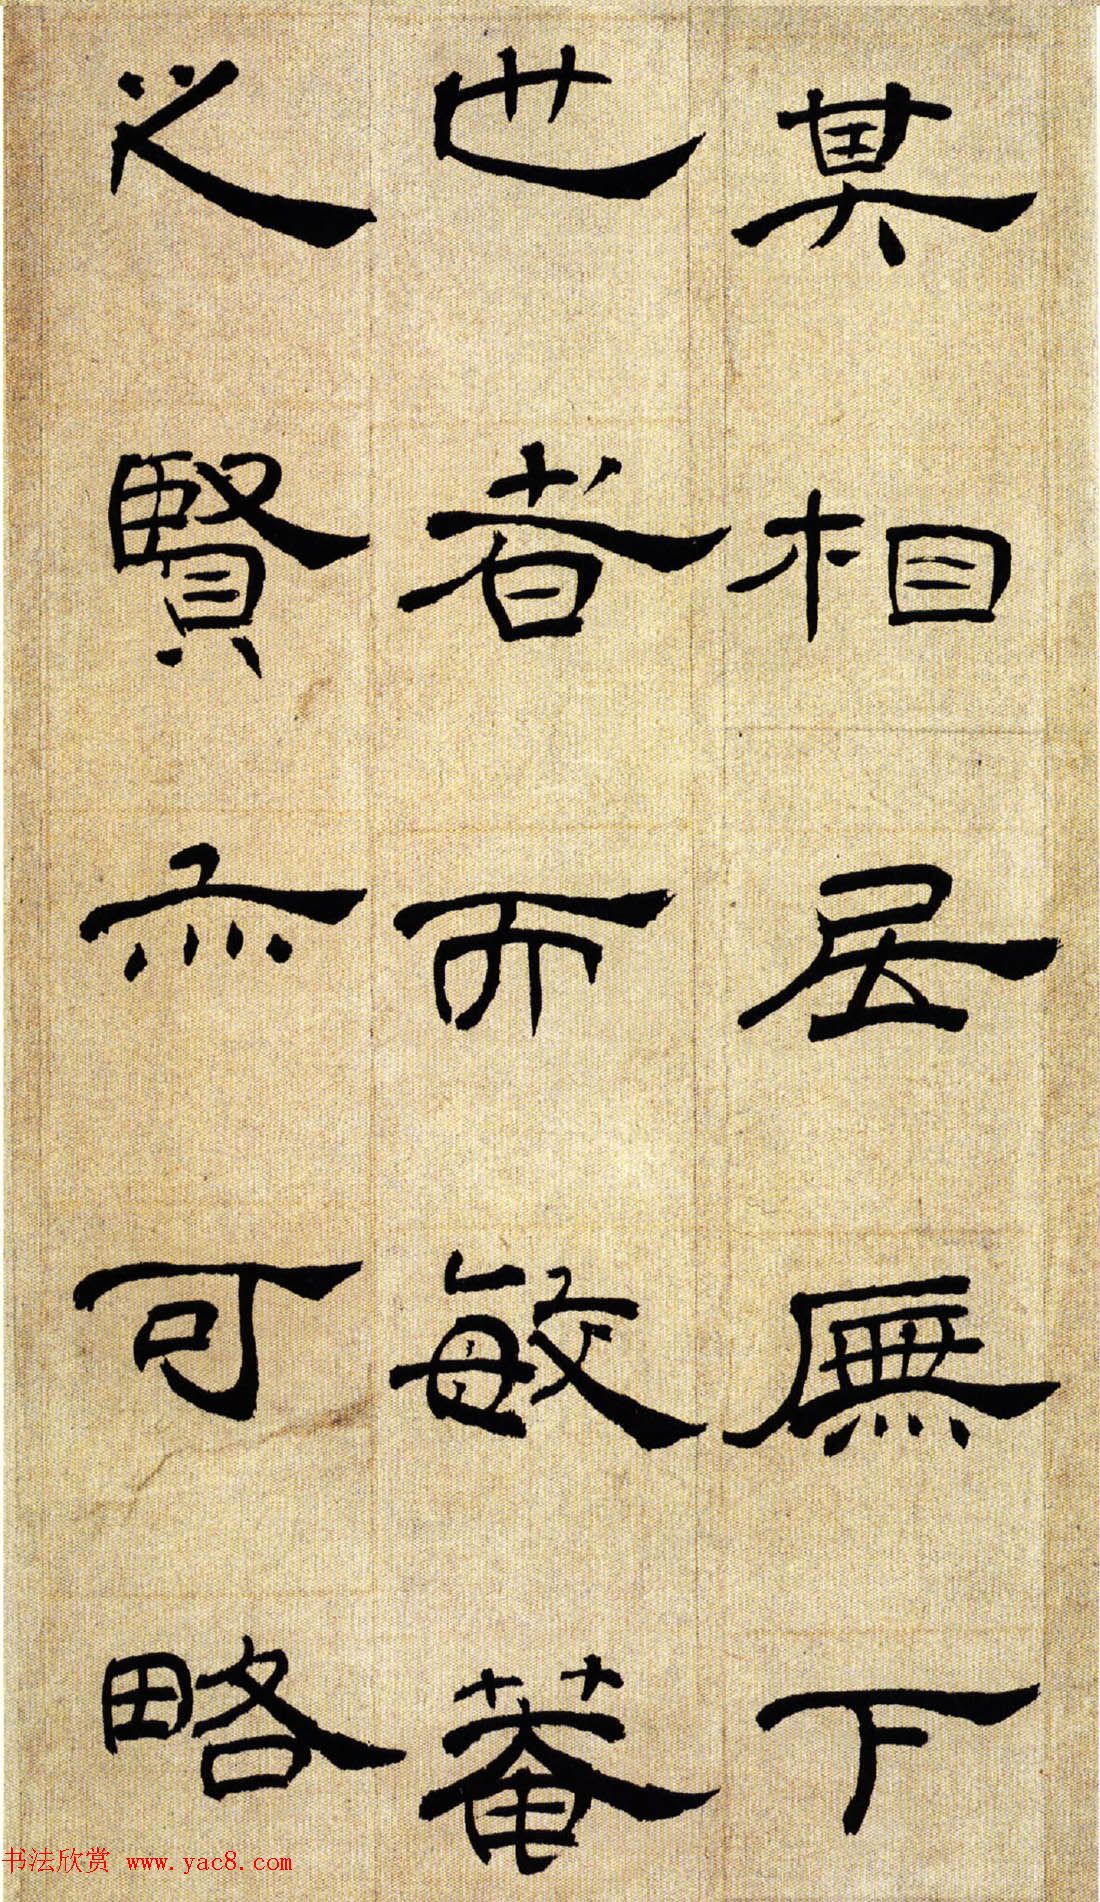 其相居廡下
也者而敏菴
之賢亦可略
书法欣赏 www.yac8.com